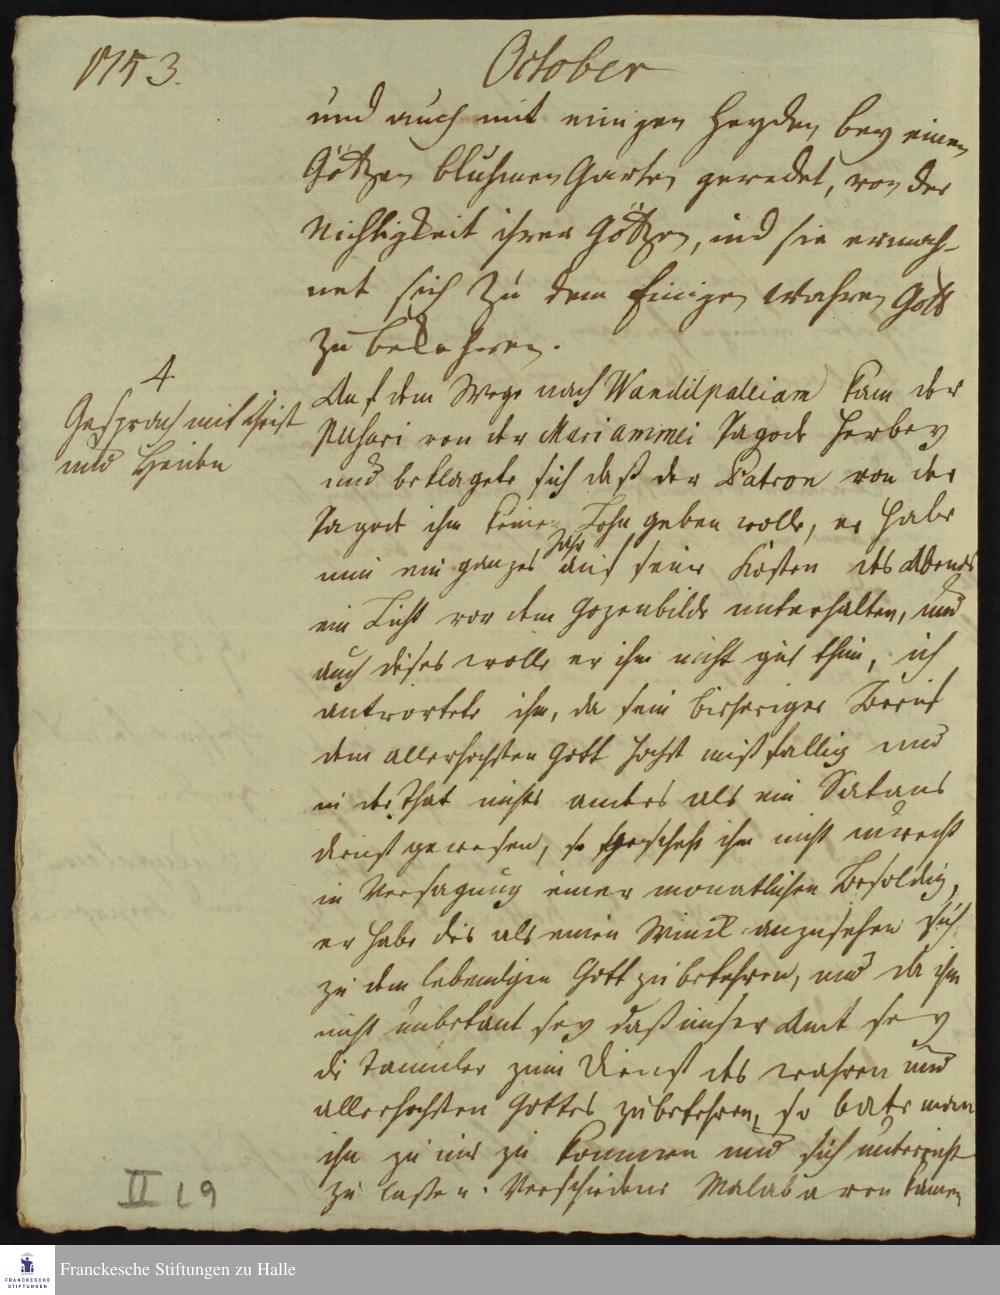 1753.
October
und auch mit einigen Heyden bey einem
Götzen bluhmen Garten geredet, von der
Nichtigkeit ihrer Götzen, und sie ermah-
net sich zu dem Einigen wahren Gott
zu bekehren.
4
Gespräch mit Christ
und Heiden
Auf dem Wege nach Wandilpalliam kam der
Pusari von der Mariammei Pagode herbey
und beklagete sich daß der Patron von der
Pagode ihm keinen Lohn geben wolle, er habe
nun ein ganzes Jahr auf seine Kosten des Abends
ein Licht vor dem Gozenbilde unterhalten, und
auch dieses wolle er ihm nicht gut thun, ich
antwortete ihm, da sein bisheriger Beruf
dem allerhochsten Gott hochst mißfallig und
in der That nichts anders als ein Satans
dienst gewesen, so geschehe ihm nicht unrecht
in Versagung einer monatlichen Besoldung,
er habe dis als einen Winck anzusehen sich
zu dem lebendigen Gott zu bekehren, und da ihm
nicht unbekant sey daß unser Amt sey
die Tamuler zum Dienst des wahren und
allerhochsten Gottes zu bekehren, so bate man
ihn zu uns zu kommen und sich unterrichten
zu lassen. Verschiedene Malabaren kamen
II L 9
FRANCKESCHE
STIFTUNGEN
Franckesche Stiftungen zu Halle